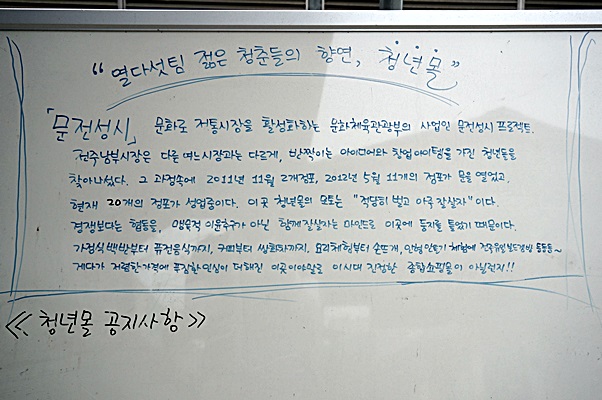 “열다섯팀 젊은 청춘들의 향연, 청년몰”
「문전성시」 문화로 전통시장을 활성화하는 문화체육관광부의 사업인 문전성시 프로젝트.
전주남부시장은 다른 여느시장과는 다르게, 반짝이는 아이디어와 창업아이템을 가진 청년들을
찾아나섰다. 그 과정속에 2011년 11월 2개점포, 2012년 5월 11개의 점포가 문을 열었고,
현재 20개의 점포가 성업중이다. 이곳 청년몰의 모토는 "적당히 벌고 아주 잘살자" 이다.
경쟁보다는 협동을, 맹목적 이윤추구가 아닌 함께잘살자는 마인드로 이곳에 둥지를 틀었기 때문이다.
가정식백반부터 퓨전음식까지, 커피부터 쌍화차까지, 요리체험부터 손뜨개, 인형만들기 체험에 전주유일보드게임방 등등등~
게다가 저렴한가격에 푸짐한인심이 더해진 이곳이야말로 이시대 진정한 종합쇼핑몰이 아닐런지!!
<<청년몰 공지사항>>